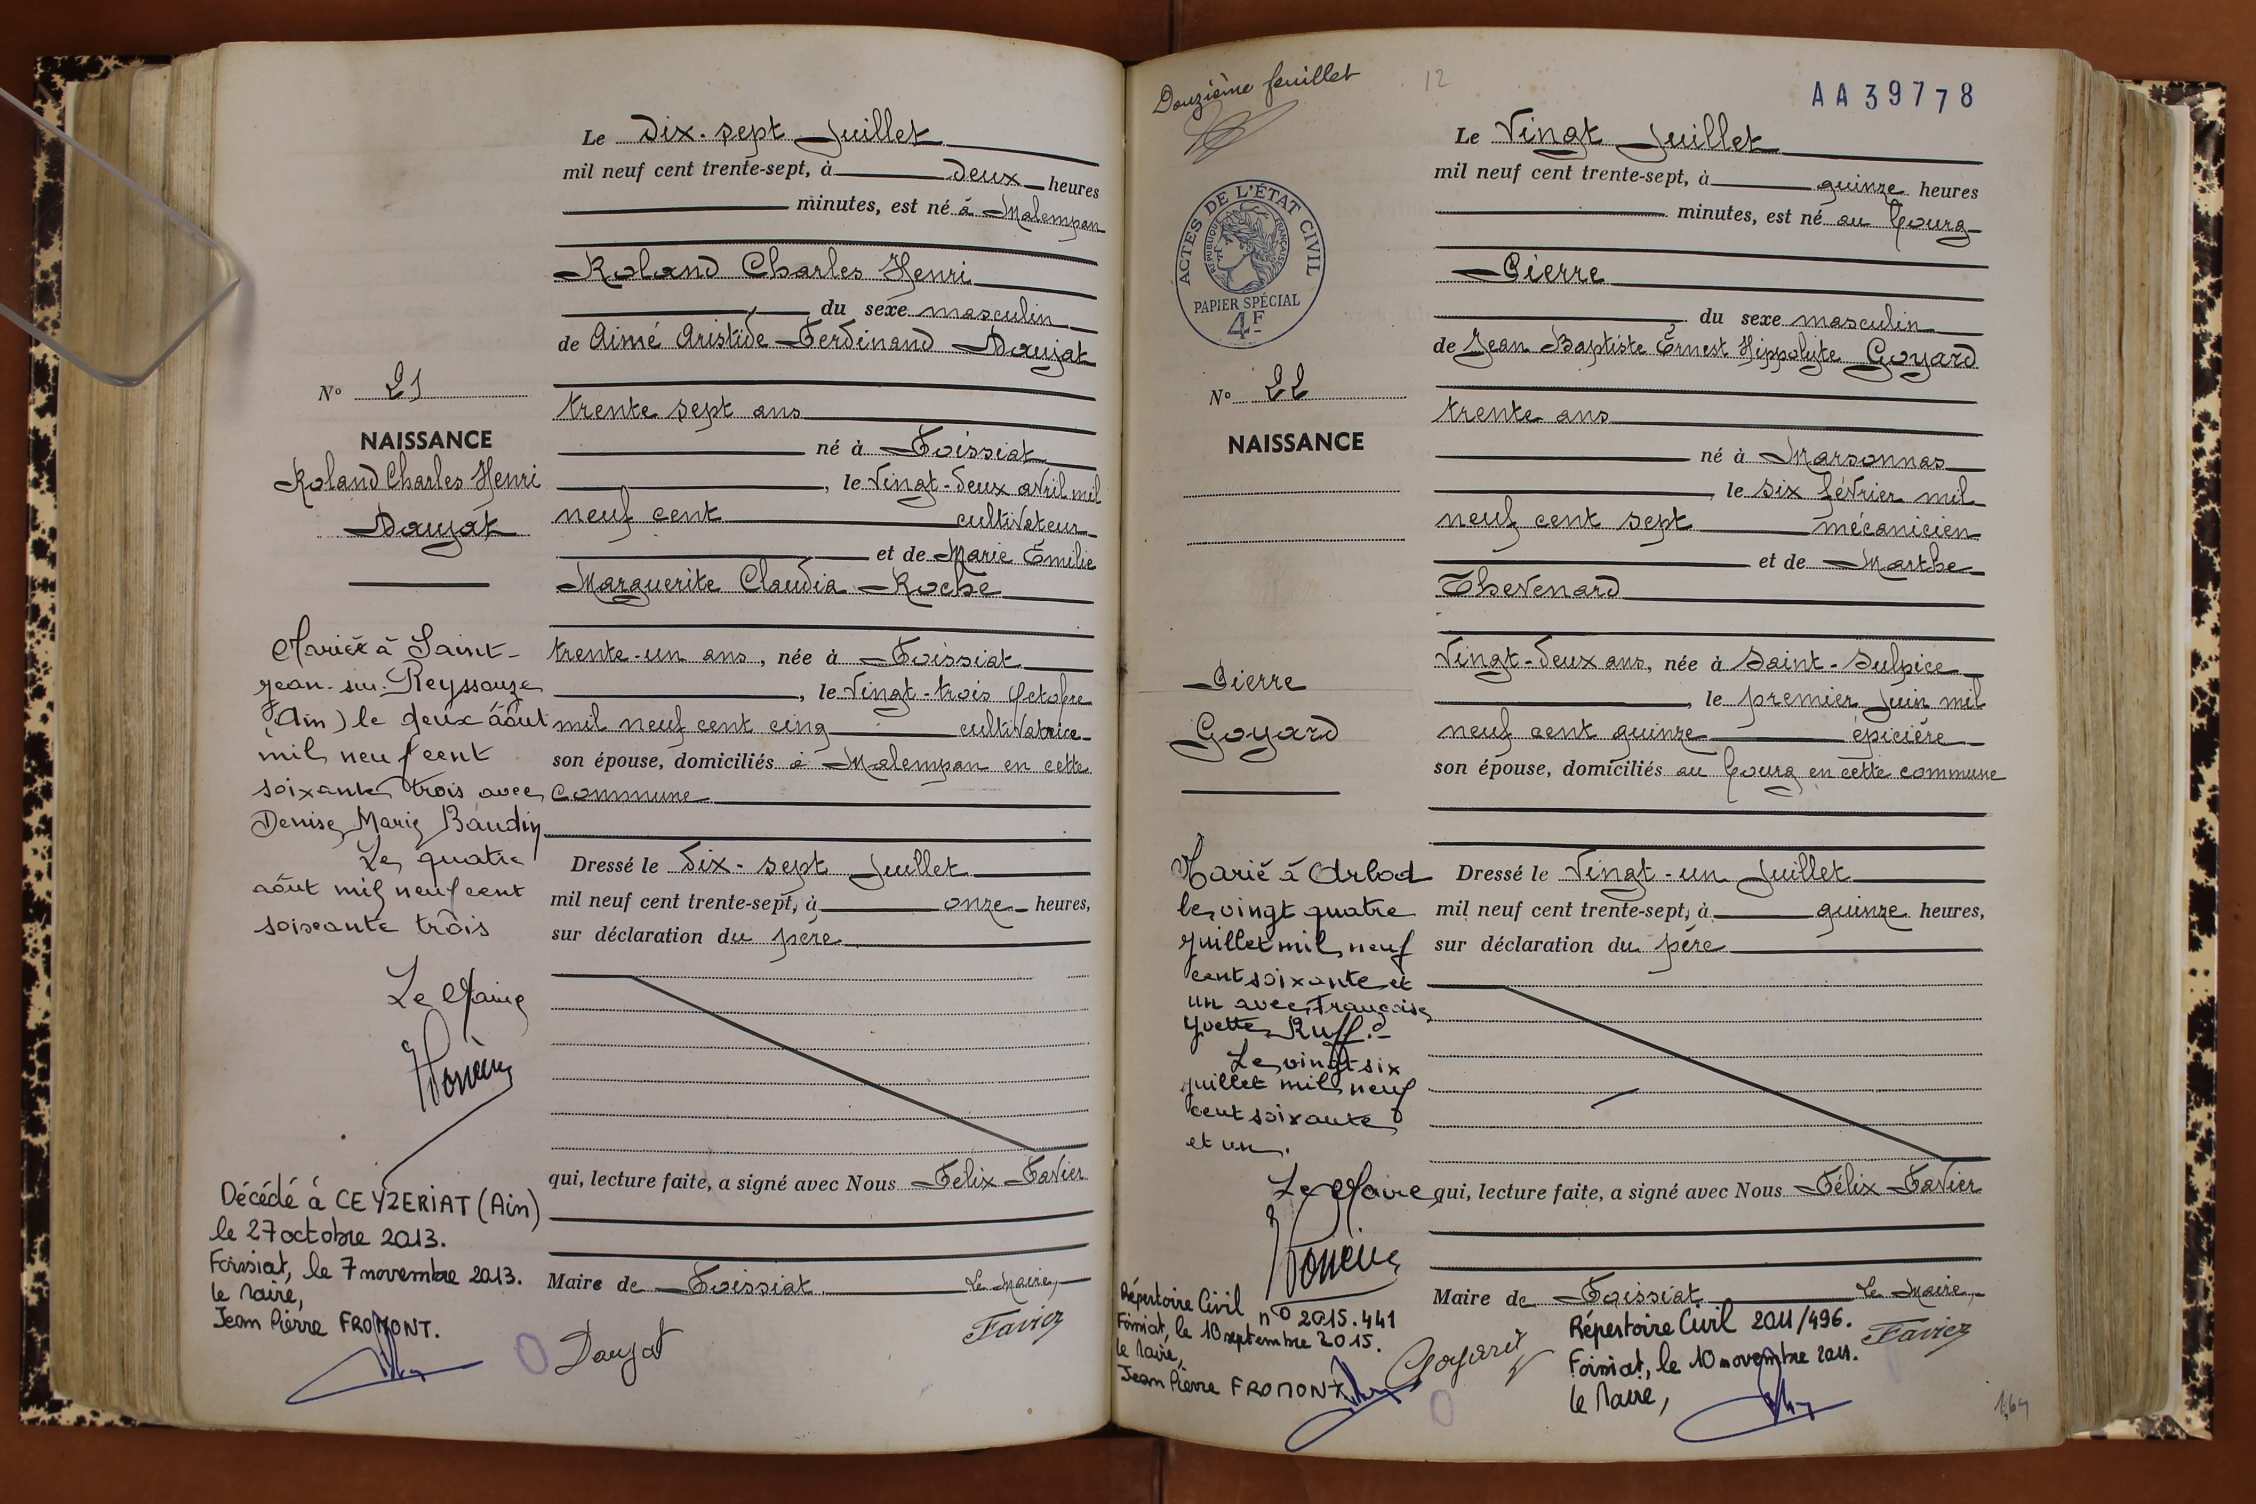 Le Dix-sept Juillet
mil neuf cent trente-sept, à deux heures
minutes, est né à Malempan
Roland Charles Henri
du sexe masculin
de Aimé Aristide Ferdinand Daujat
trente sept ans
né à Foissiat
, le Vingt-deux avril mil
neuf cent cultivateur
et de Marie Émilie
Marguerite Claudia Roche
trente-un ans, née à Foissiat
, le Vingt-trois Octobre
mil neuf cent cinq cultivatrice
son épouse, domiciliés à Malempan en cette
commune
Dressé le Dix-sept Juillet
mil neuf cent trente-sept, à onze heures,
sur déclaration du père
qui, lecture faite, a signé avec Nous Félix Favier
Maire de Foissiat Le Maire,
Daujat Favier
No 21
NAISSANCE
Roland Charles Henri
Daujat
Marié à Saint-
Jean-sur-Reyssouze
(Ain) le deux août
mil neuf cent
soixante trois avec
Denise Marie Baudin
Le quatre
août mil neuf cent
soixante trois
Le Maire
Décédé à CEYZERIAT (Ain)
le 27 octobre 2013.
Foissiat, le 7 novembre 2013.
le Maire,
Jean Pierre FROMONT.
Douzième feuillet
12
AA39778
Le Vingt Juillet
mil neuf cent trente-sept, à quinze heures
minutes, est né au bourg
Pierre
du sexe masculin
de Jean Baptiste Ernest Hippolyte Goyard
trente ans
né à Marsonnas
, le six février mil
neuf cent sept mécanicien
et de Marthe
Thevenard
Vingt-deux ans, née à Saint-Sulpice
, le premier Juin mil
neuf cent quinze épicière
son épouse, domiciliés au bourg en cette commune
Dressé le Vingt-un Juillet
mil neuf cent trente-sept, à quinze heures,
sur déclaration du père
qui, lecture faite, a signé avec Nous Félix Favier
Maire de Foissiat Le Maire,
Goyard Favier
ACTES DE L'ÉTAT CIVIL
RÉPUBLIQUE FRANÇAISE
PAPIER SPÉCIAL
4F
No 22
NAISSANCE
Pierre
Goyard
Marié à Arbod
le vingt quatre
juillet mil neuf
cent soixante et
un avec Françoise
Yvette Ruff.-
Le vingt six
juillet mil neuf
cent soixante
et un.
Le Maire
Répertoire Civil n° 2015.441
Foissiat, le 10 septembre 2015.
le Maire,
Jean Pierre FROMONT
Répertoire Civil 2011/496.
Foissiat, le 10 novembre 2011.
le Maire,